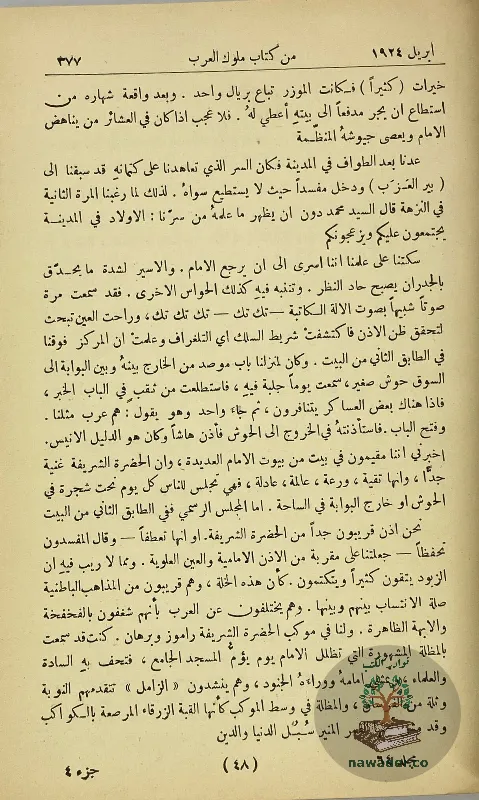 ابريل ١٩٢٤ من كتاب ملوك العرب ٣٧٧
خيرات (كثيراً) فكانت الموزر تباع بريال واحد . وبعد واقعة شهاره من
استطاع ان يجر مدفعاً الى بيته أعطي لهُ . فلا عجب اذا كان في العشائر من يناهض
الامام ويعصى جيوشهُ المنظّمة
عدنا بعد الطواف في المدينة فكان السر الذي تعاهدنا على كتمانه قد سبقنا الى
( بير العَزَب ) ودخل مفسداً حيث لا يستطيع سواهُ . لذلك لما رغبنا المرة الثانية
في النزهة قال السيد محمد دون ان يظهر ما علمهُ من سرّنا : الاولاد في المدينة
يجتمعون عليكم ويزعجونكم
سكتنا على علمنا اننا اسرى الى ان يرجع الامام . والاسير لشدة ما يحدّق
بالجدران يصبح حاد النظر . وتتنبه فيهِ كذلك الحواس الاخرى . فقد سمعت مرة
صوتاً شبيهاً بصوت الالة الكاتبة — تك تك — تك تك تك ، وراحت العين تبحث
لتحقق ظن الاذن فاكتشفتْ شريط السلك اي التلغراف وعلمتُ ان المركز فوقنا
في الطابق الثاني من البيت . وكان لمنزلنا باب موصد من الخارج بينهُ وبين البوابة الى
السوق حوش صغير، سمعت يوماً جلبة فيهِ ، فاستطلعت من ثقب في الباب الخبر ،
فاذا هناك بعض العساكر يتنافرون ، ثم جاء واحد وهو يقول : هم عرب مثلنا .
وفتح الباب . فاستأذنتهُ في الخروج الى الحوش فأذن هاشاً وكان هو الدليل الانيس.
اخبرني اننا مقيمون في بيت من بيوت الامام العديدة ، وان الحضرة الشريفة غنية
جدًّا ، وانها تقية ، ورعة ، عالمة ، عادلة ، فهي تجلس للناس كل يوم تحت شجرة في
الحوش او خارج البوابة في الساحة . اما المجلس الرسمي ففي الطابق الثاني من البيت
نحن اذن قريبون جداً من الحضرة الشريفة. او انها تعطفاً — وقال المفسدون
تحفظاً — جعلتنا على مقربة من الاذن الامامية والعين العلوية . ومما لا ريب فيهِ ان
الزيود يتقون كثيراً ويتكتمون . كأن هذه الخلة ، وهم قريبون من المذاهب الباطنية
صلة الانتساب بينهم وبينها . وهم يختلفون عن العرب بأنهم شغفون بالفخفخة
والابهة الظاهرة . ولنا في موكب الحضرة الشريفة راموز وبرهان . كنت قد سمعت
بالمظلة المشهورة التي تظلل الامام يوم يؤم المسجد الجامع ، فتحف بهِ السادة
والعلماء ، امامهُ ووراءهُ الجنود ، وهم ينشدون « الزامل » تتقدمهم النوبة
وثلة من ، والمظلة في وسط الموكب كأنها القبة الزرقاء المرصعة بالكواكب
وقد المنير سُبُل الدنيا والدين
جزء ٤ (٤٨) مجلد ٦٤
نوادر الكتب
nawader.co